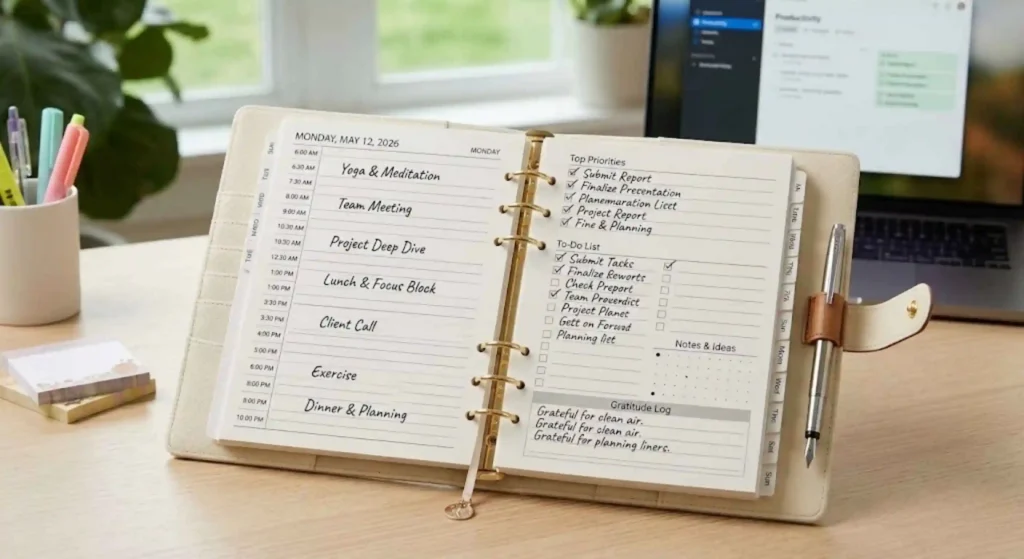 MONDAY, MAY 12, 2026
MONDAY
6:00 AM
6:30 AM
7:30 AM
8:00 AM
9:00 AM
10:30 AM
10:30 AM
12:30 AM
1:00 PM
1:00 PM
3:30 PM
3:30 PM
4:00 PM
5:00 PM
6:00 PM
8:00 PM
8:00 PM
10:00 PM
Yoga & Meditation
Team Meeting
Project Deep Dive
Lunch & Focus Block
Client Call
Exercise
Dinner & Planning
Top Priorities
Submit Report
Finalize Presentation
Planemuration Licct
Project Report
Fine & Planning
To-Do List
Submit Tacks
Finalize Reworts
Check Preport
Team Proverdict
Project Planet
Gett on Forwod
Planning list
Notes & Ideas
Gratitude Log
Grateful for clean air.
Grateful for clean air.
Grateful for planning liners.
Productivity